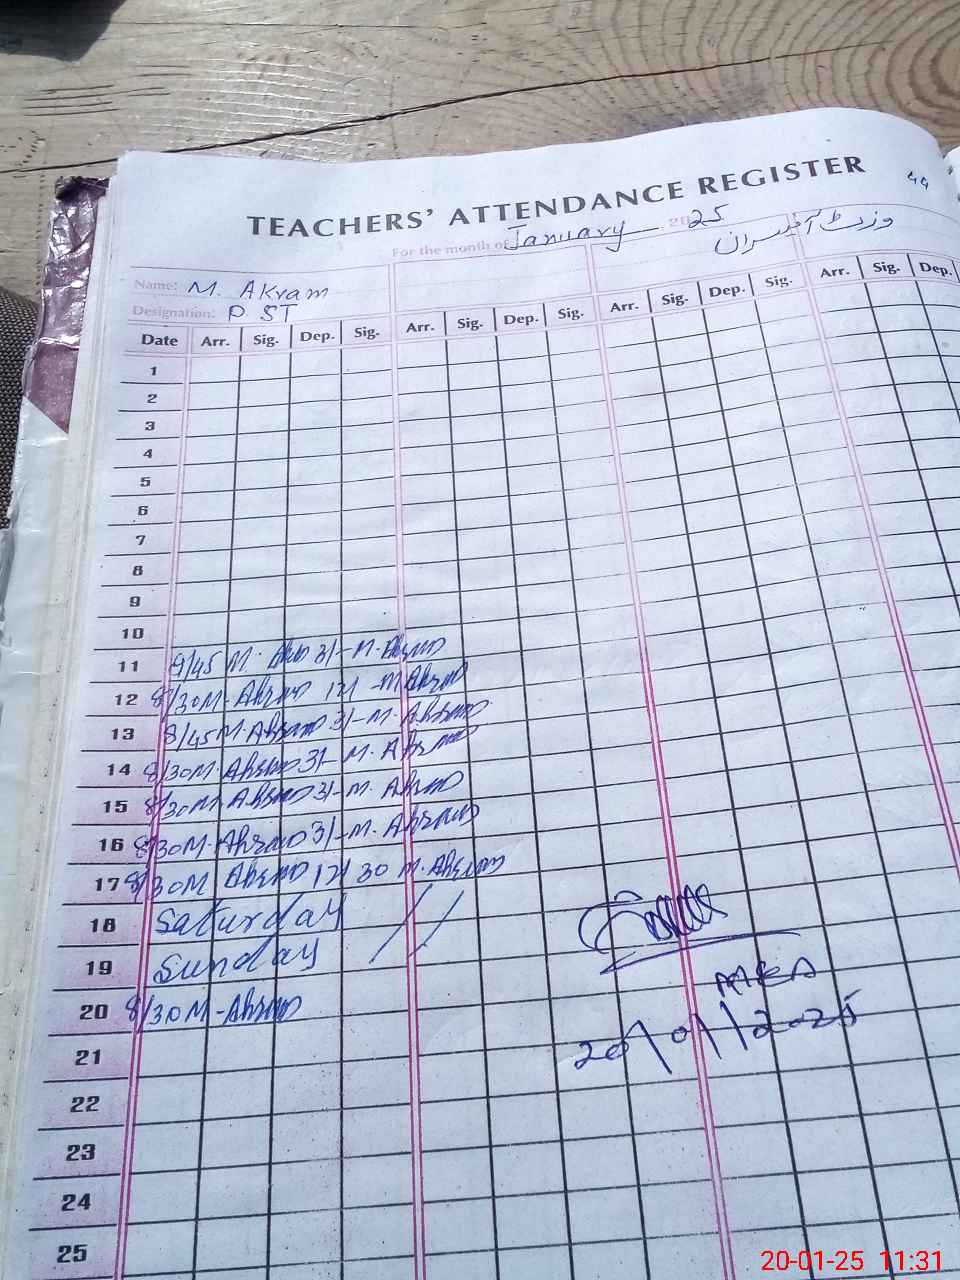 44
TEACHERS' ATTENDANCE REGISTER
For the month of January 2025
وزٹ آفیسران
Name: M. AKram
Designation: P ST
Date Arr. Sig. Dep. Sig. Arr. Sig. Dep. Sig. Arr. Sig. Dep. Sig. Arr. Sig. Dep.
1
2
3
4
5
6
7
8
9
10
11 9/45 M. Akram 3/- M. Akram
12 8/30 M. Akram 12/ - M Akram
13 8/45 M. Akram 3/- M. Akram
14 8/30 M. Akram 3/- M. Akram
15 8/30 M. Akram 3/- M. Akram
16 8/30 M. Akram 3/- M. Akram
17 8/30 M Akram 12/30 M. Akram
18 Saturday
19 Sunday
20 8/30 M - Akram
MEA
20/01/2025
21
22
23
24
25
20-01-25 11:31